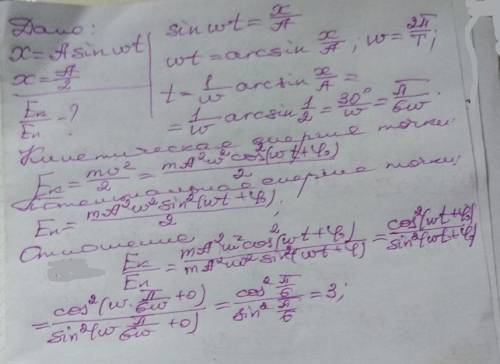 Дано:
x = A sin wt
x = A/2
Eк/Eп - ?
sin wt = x/A
wt = arcsin x/A; w = 2π/T;
t = 1/w arcsin x/A =
= 1/w arcsin 1/2 = 30°/w = π/6w.
Кинетическая энергия точки:
Eк = mv²/2 = mA²w²cos²(wt+φ₀)/2
Потенциальная энергия точки:
Eп = mA²w²sin²(wt+φ₀)/2
Отношение
Eк/Eп = mA²w²cos²(wt+φ₀)/mA²w²sin²(wt+φ₀) = cos²(wt+φ₀)/sin²(wt+φ₀)
= cos²(w·π/6w+0)/sin²(w π/6w+0) = cos² π/6/sin² π/6 = 3;